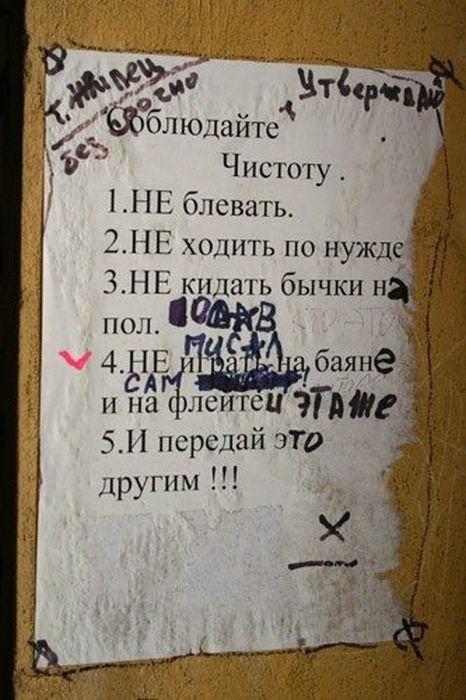 т. Жилец
без срочно
Утверждай
Соблюдайте
Чистоту .
1.НЕ блевать.
2.НЕ ходить по нужде
3.НЕ кидать бычки на
пол.
ПИСАЛ
4.НЕ играть на баяне
САМ !
и на флейте и ЭТАЖЕ
5.И передай это
другим !!!
X